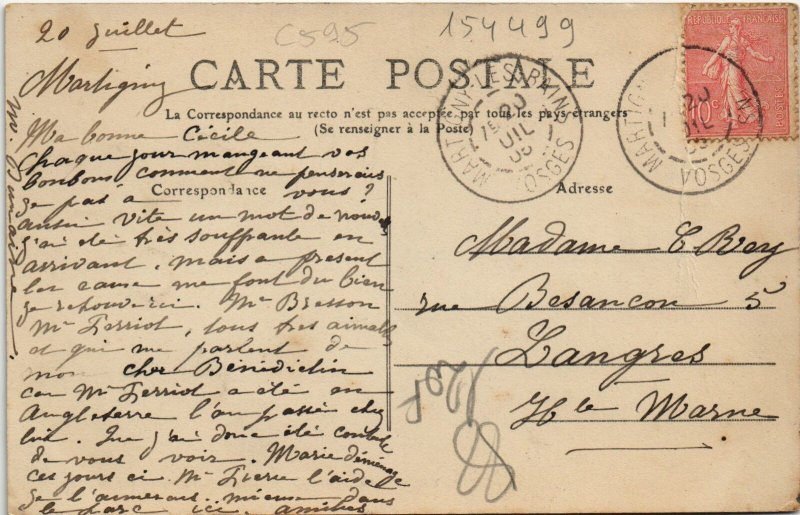 20 Juillet
C595
154499
Martigny
CARTE POSTALE
La Correspondance au recto n'est pas acceptée par tous les pays étrangers
(Se renseigner à la Poste)
RÉPUBLIQUE FRANÇAISE
10c
POSTES
MARTIGNY-LES-BAINS
20
JUIL
05
VOSGES
MARTIGNY
20
JUIL
VOSGES
Ma bonne Cécile
Chaque jour mangeant vos
bonbons comment ne penserais
je pas à vous?
Correspondance
Adresse
aussi vite un mot de nous
j'ai été très souffrante en
arrivant. Mais a present
les eaux me font du bien
je retrouve ici. Mr Bresson
Mr Ferriot, tous très aimables
et qui me parlent de
mon cher Bénédictin
car Mr Ferriot a été en
Angleterre l'an passé chez
lui. Que j'ai donc été contente
de vous voir. Marie déménage
ces jours ci Mr Pierre l'aide
je l'aimerais mieux dans
le parc ici. amitiés
Madame C Rey
rue Besancon 5
Langres
Hte Marne
20F